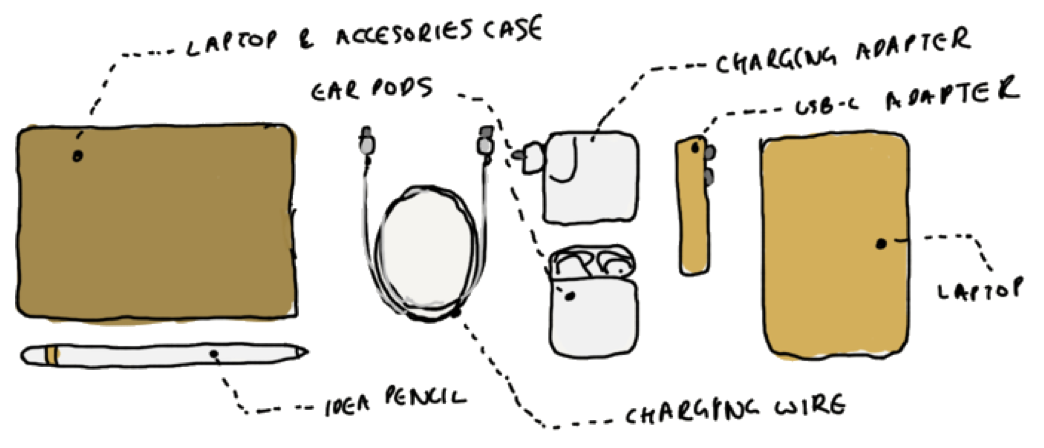 LAPTOP & ACCESORIES CASE
CHARGING ADAPTER
EAR PODS
USB-C ADAPTER
LAPTOP
IDEA PENCIL
CHARGING WIRE